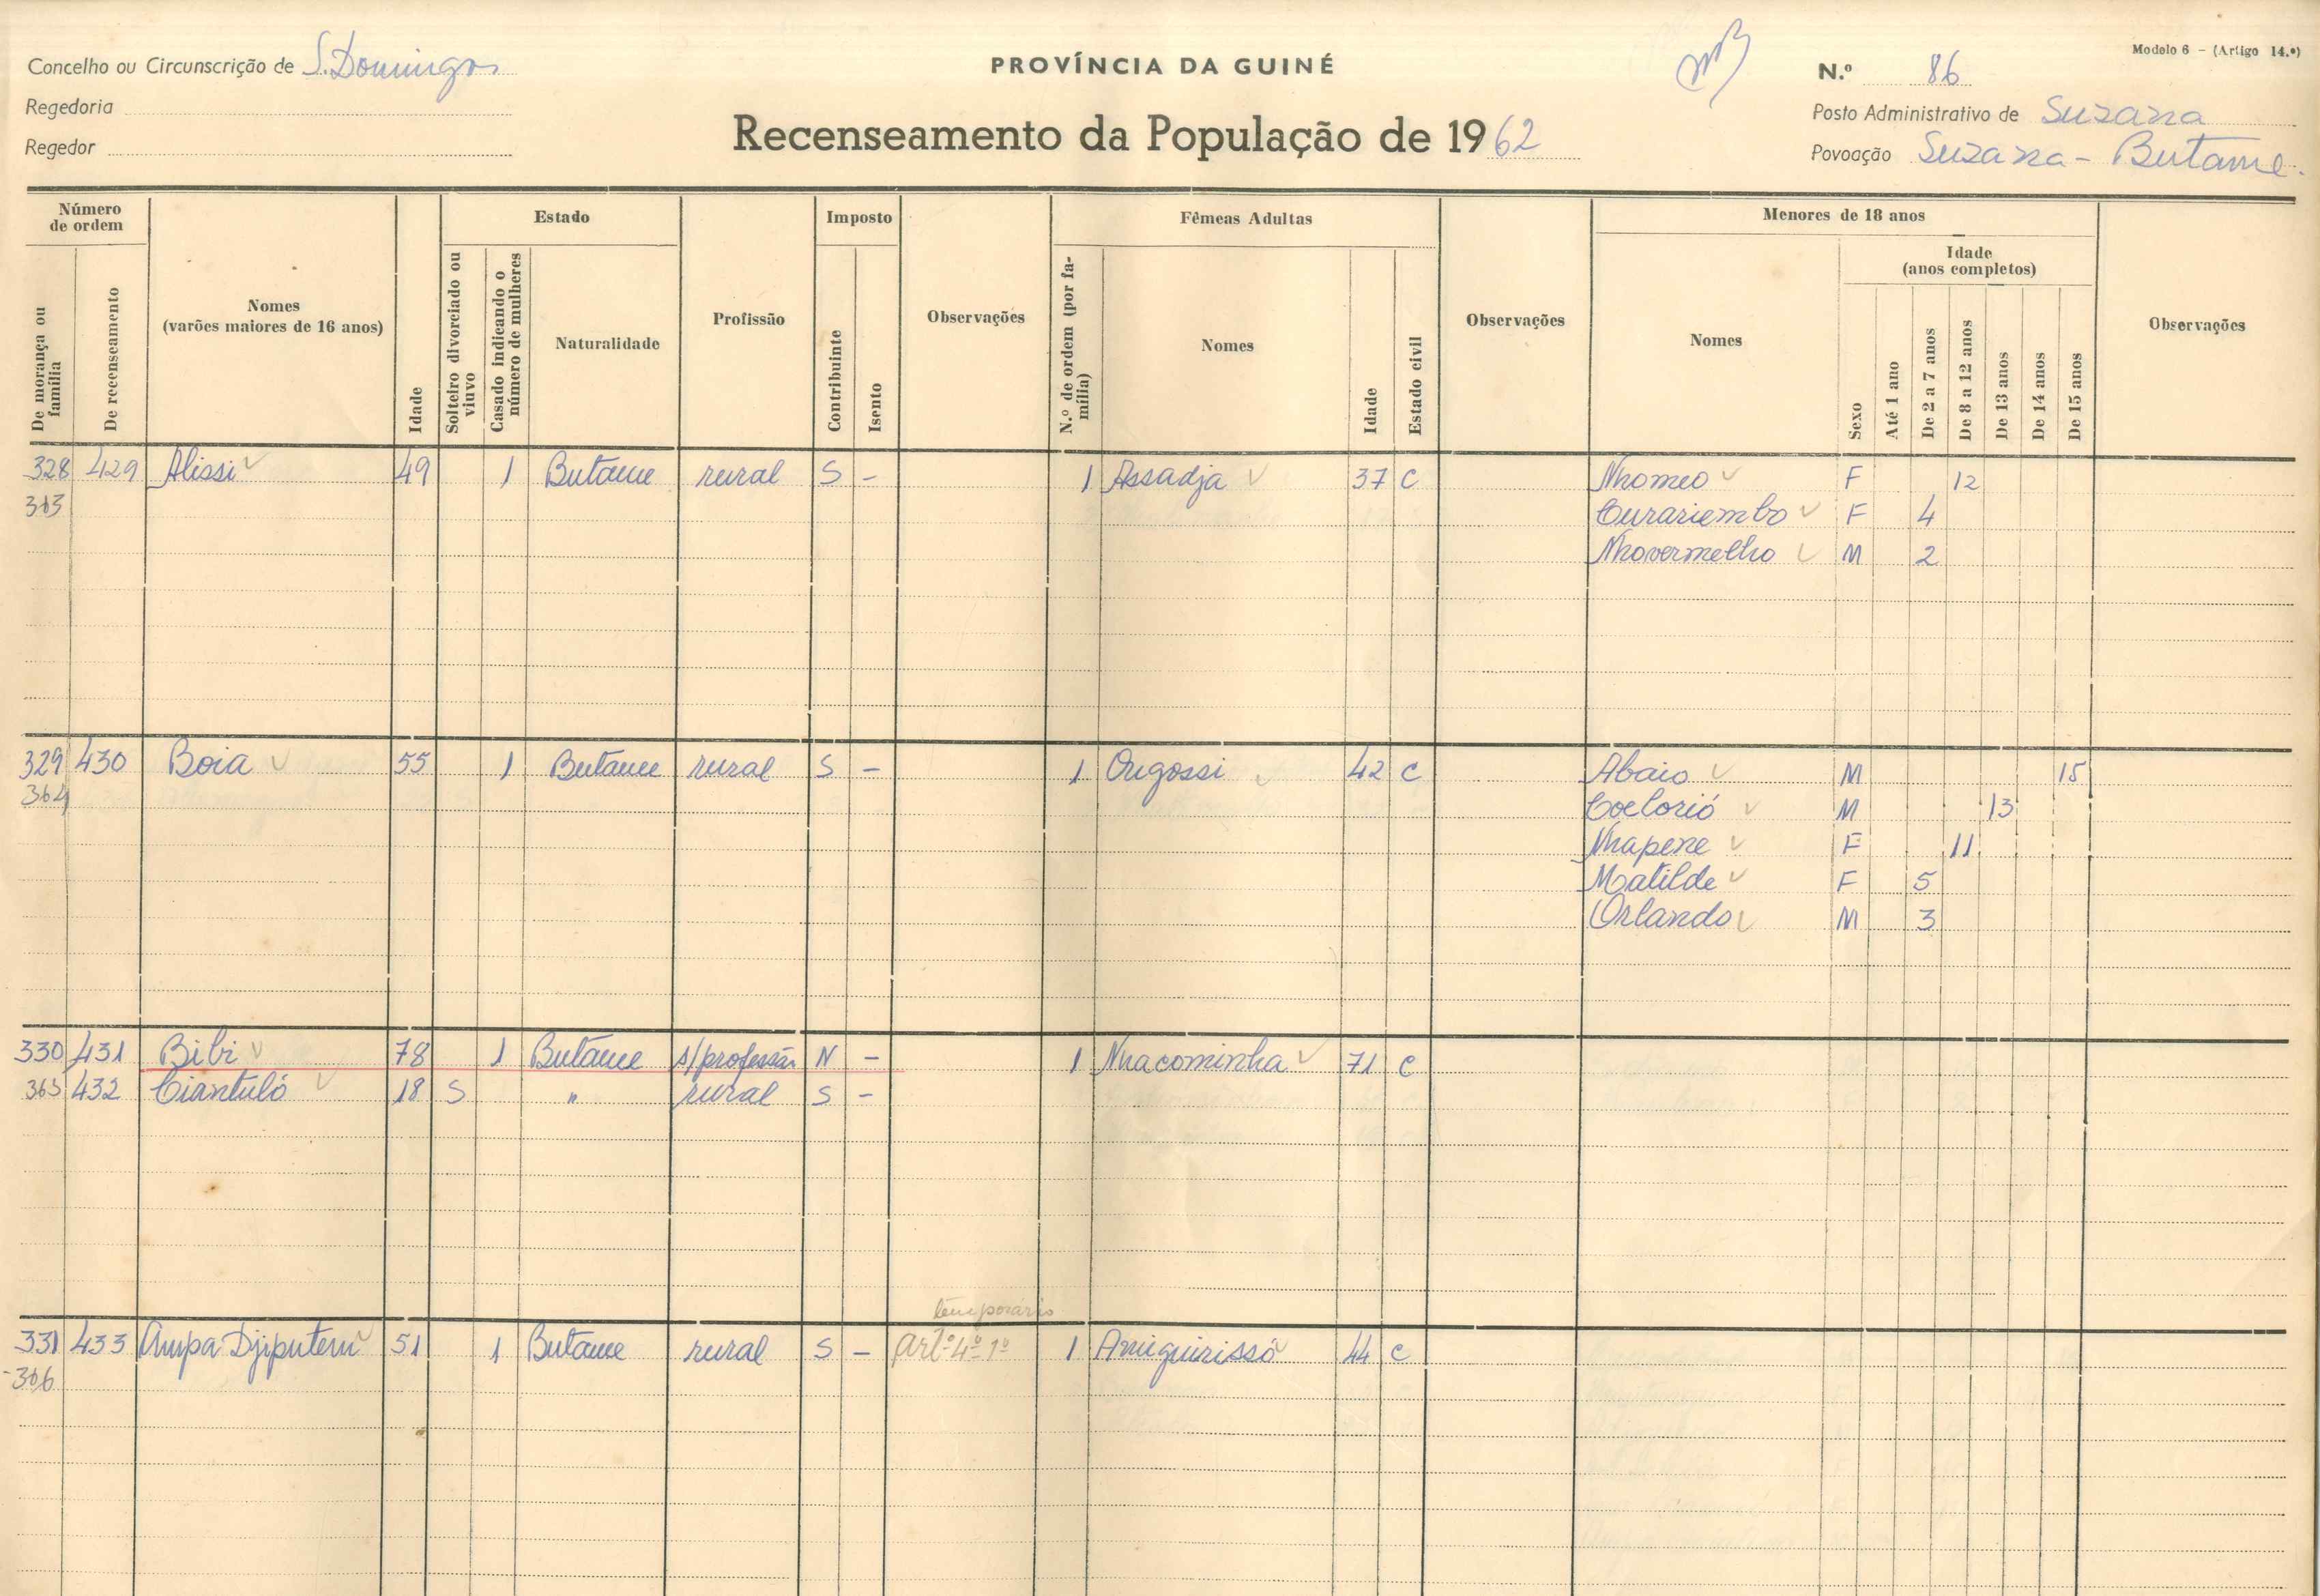 Modelo 6 – (Artigo 14.º)
Concelho ou Circunscrição de S. Domingos
PROVÍNCIA DA GUINÉ
N.º 86
Regedoria
Recenseamento da População de 1962
Posto Administrativo de Suzana
Regedor
Povoação Suzana - Butame.
Número de ordem
De morança ou família
De recenseamento
Nomes
(varões maiores de 16 anos)
Idade
Estado
Solteiro divorciado ou viuvo
Casado indicando o número de mulheres
Naturalidade
Profissão
Imposto
Contribuinte
Isento
Observações
Fêmeas Adultas
N.º de ordem (por família)
Nomes
Idade
Estado civil
Observações
Menores de 18 anos
Nomes
Sexo
Idade
(anos completos)
Até 1 ano
De 2 a 7 anos
De 8 a 12 anos
De 13 anos
De 14 anos
De 15 anos
Observações
328 429 Alissi 49 1 Butame rural S - 1 Assadja 37 C Nhomeo F 12
363 Curariembo F 4
Nhovermelho M 2
329 430 Boia 55 1 Butame rural S - 1 Ougossi 42 C Abaio M 15
364 Coelorió M 13
Nhapene F 11
Matilde F 5
Orlando M 3
330 431 Bibi 78 1 Butame s/profissão N - 1 Nhacominha 71 C
365 432 Ciantuló 18 S " rural S -
temporário
331 433 Ampa Djiputem 51 1 Butame rural S - Artº 4º 1º 1 Amiguirissó 44 C
366